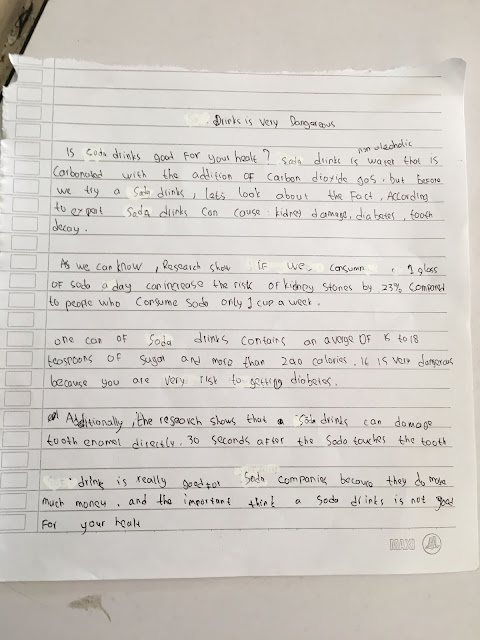 Drinks is very Dangereous
Is soda drinks good For your healt ? Soda drinks is water that is
non alcoholic
Carbonated with the addition OF Carbon dioxide gas. but Before
we try a Soda drinks, lets look about the Fact. According
to expert Soda drinks can cause : kidney damage, diabetes, tooth
decay.
As we can know, Research show IF we consume 1 glass
OF soda a day can increase the risk OF kidney stones by 23% Compared
to people who Consume Soda only 1 cup a week.
one can OF Soda drinks contains an averge OF 15 to 18
teaspoons OF sugar and more than 240 calories. It is very dangerous
because you are very risk to getting diabetes.
Additionally, the research shows that a Soda drinks can damage
tooth enamel directly. 30 seconds after the Soda touches the tooth
drink is really good for Soda companies because they do more
much money. and the important think a Soda drinks is not good
For your healt
MAXI